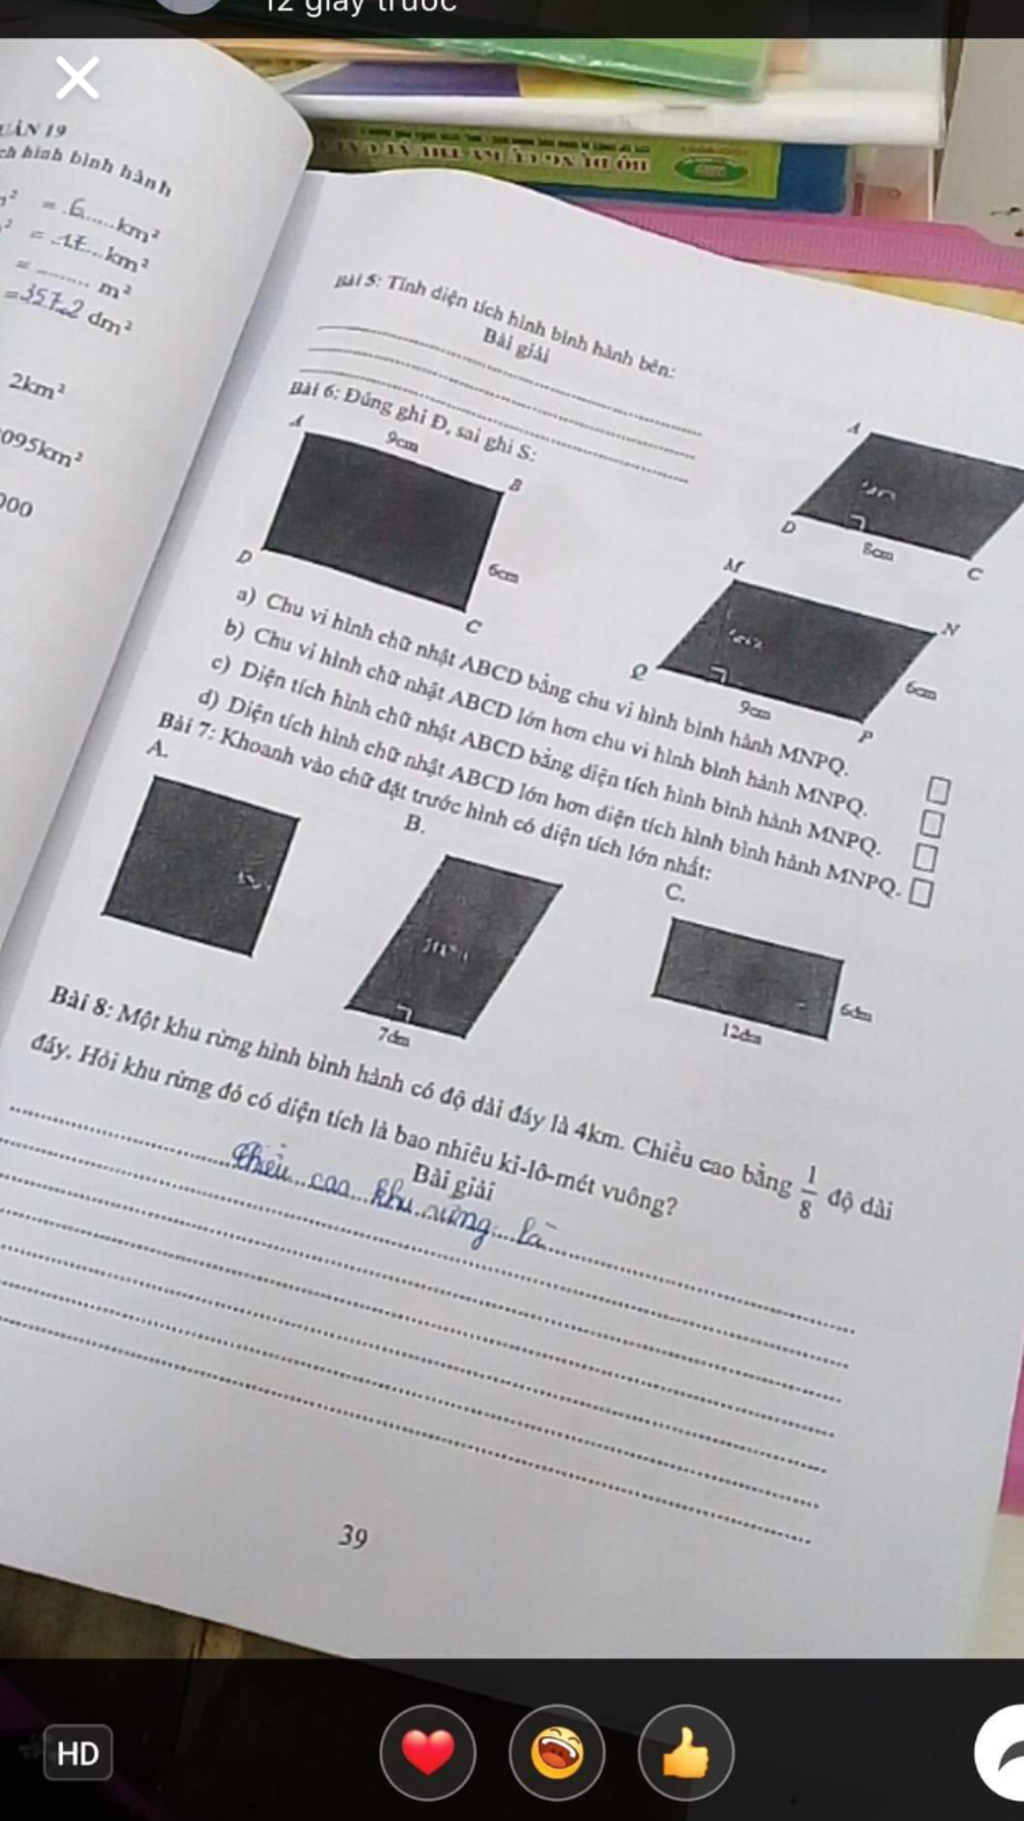 12 giây trước
UẦN 19
ch hình bình hành
= 6 km²
= 17 km²
= m²
= 3572 dm²
2km²
095km²
000
Bài 5: Tính diện tích hình bình hành bên:
Bài giải
A
8cm
D
C
Bài 6: Đúng ghi Đ, sai ghi S:
A
9cm
B
6cm
D
C
M
N
6cm
Q
9cm
P
a) Chu vi hình chữ nhật ABCD bằng chu vi hình bình hành MNPQ.
b) Chu vi hình chữ nhật ABCD lớn hơn chu vi hình bình hành MNPQ.
c) Diện tích hình chữ nhật ABCD bằng diện tích hình bình hành MNPQ.
d) Diện tích hình chữ nhật ABCD lớn hơn diện tích hình bình hành MNPQ.
Bài 7: Khoanh vào chữ đặt trước hình có diện tích lớn nhất:
A.
B.
C.
7dm
12dm
6dm
Bài 8: Một khu rừng hình bình hành có độ dài đáy là 4km. Chiều cao bằng 1/8 độ dài
đáy. Hỏi khu rừng đó có diện tích là bao nhiêu ki-lô-mét vuông?
Bài giải
Chiều cao khu rừng là
39
HD